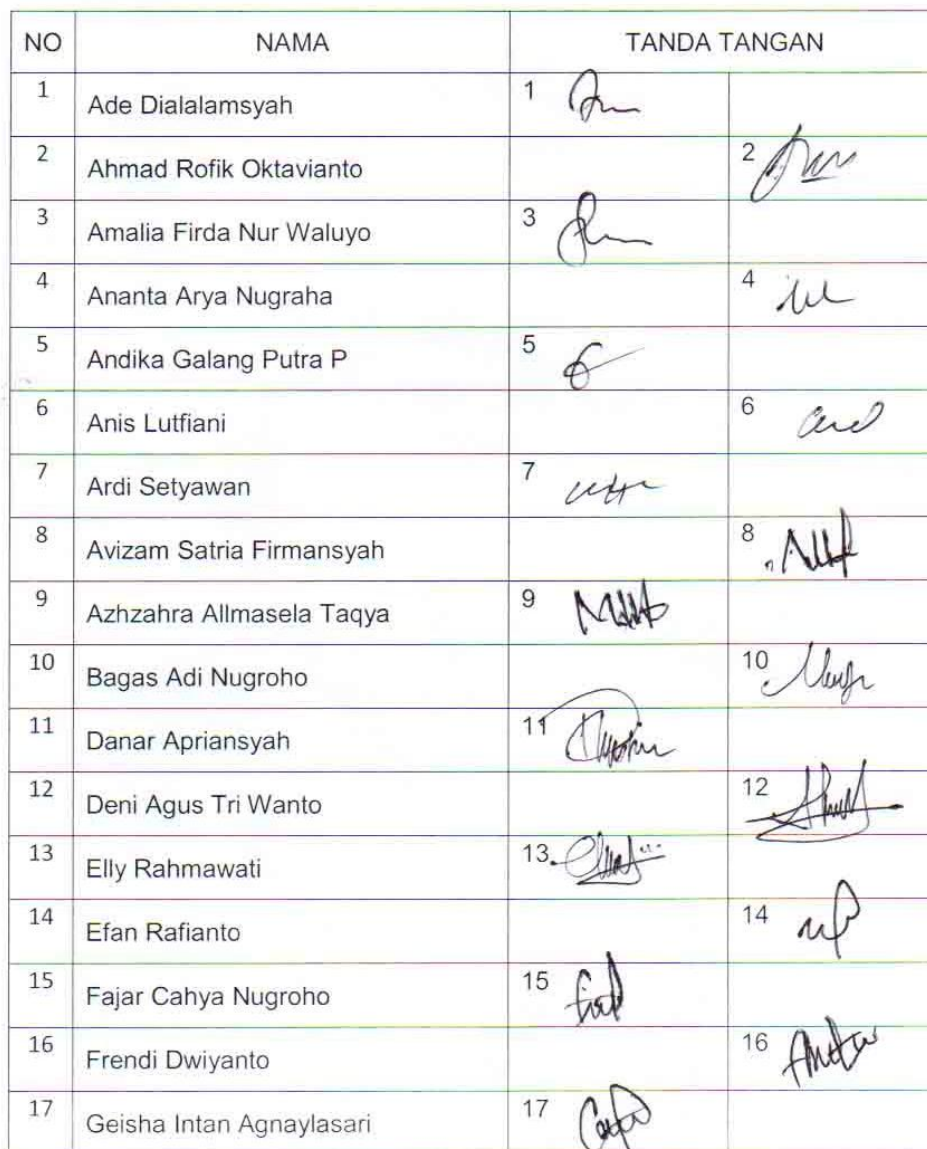 NO NAMA TANDA TANGAN
1 Ade Dialalamsyah 1
2 Ahmad Rofik Oktavianto 2
3 Amalia Firda Nur Waluyo 3
4 Ananta Arya Nugraha 4
5 Andika Galang Putra P 5
6 Anis Lutfiani 6
7 Ardi Setyawan 7
8 Avizam Satria Firmansyah 8
9 Azhzahra Allmasela Taqya 9
10 Bagas Adi Nugroho 10
11 Danar Apriansyah 11
12 Deni Agus Tri Wanto 12
13 Elly Rahmawati 13
14 Efan Rafianto 14
15 Fajar Cahya Nugroho 15
16 Frendi Dwiyanto 16
17 Geisha Intan Agnaylasari 17